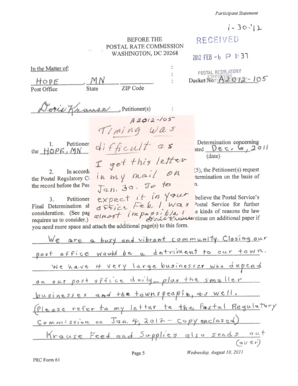 Participant Statement
1-30-'12
BEFORE THE
POSTAL RATE COMMISSION
WASHINGTON, DC 20268
RECEIVED
2012 FEB -6 P 1:37
POSTAL REGULATORY
In the Matter of:
HOPE MN
Post Office State ZIP Code
Docket No: A2012-105
Doris Krause, Petitioner(s)
A2012-105
Timing was
difficult as
I got this letter
in my mail on
Jan. 30. To
expect it in your
office Feb. 1 was
almost impossible!
1. Petitioner
Determination concerning
the HOPE, MN
Dec. 6, 2011
(date)
2. In accord
(3), the Petitioner(s) request
the Postal Regulatory C
termination on the basis of
the record before the Po
3. Petitioner
believe the Postal Service's
Final Determination sh
Postal Service for further
consideration. (See pa
kinds of reasons the law
requires us to consider.)
tinue on additional paper if
you need more space and attach the additional page(s) to this form.
We are a busy and vibrant community. Closing our
post office would be a detriment to our town.
We have 4 very large businesses who depend
on our post office daily, plus the smaller
businesses and the townspeople, as well.
(Please refer to my letter to the Postal Regulatory
Commission on Jan. 4, 2012 - Copy enclosed)
Krause Feed and Supplies also sends out
(over)
PRC Form 61
Page 5
Wednesday, August 10, 2011